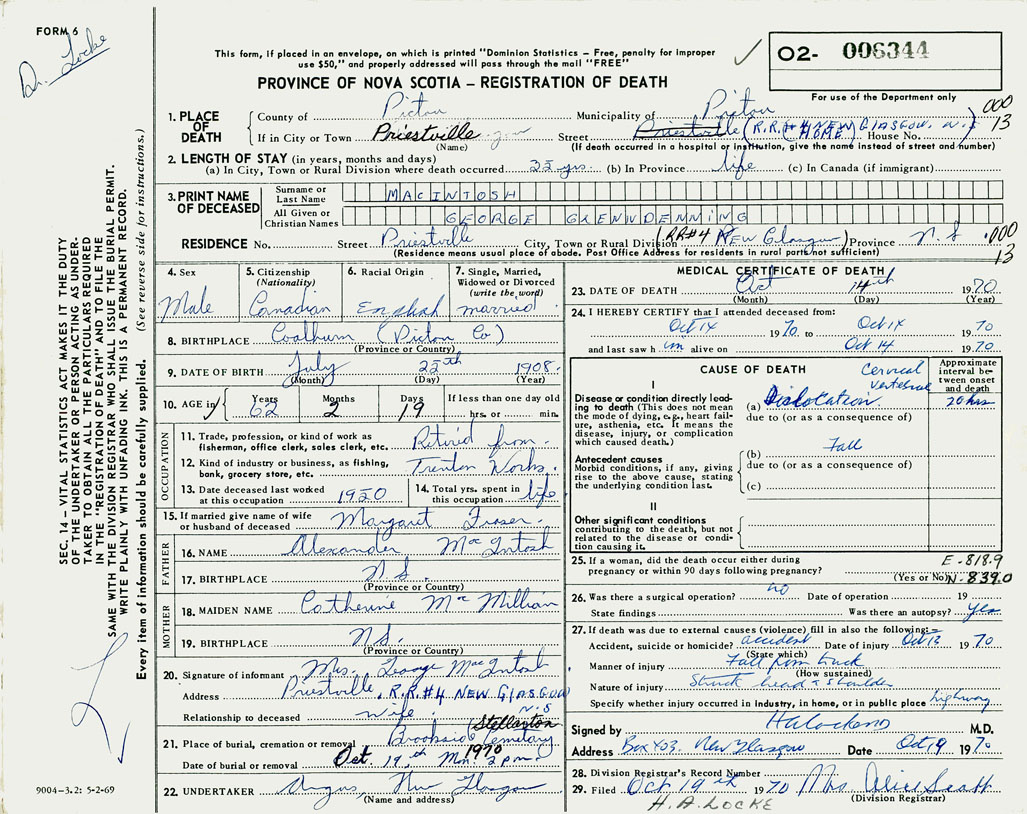 FORM 6
Dr. Locke
This form, if placed in an envelope, on which is printed "Dominion Statistics – Free, penalty for improper
use $50," and properly addressed will pass through the mail "FREE"
PROVINCE OF NOVA SCOTIA – REGISTRATION OF DEATH
02- 006344
For use of the Department only
1. PLACE OF DEATH County of Pictou Municipality of Pictou 000
If in City or Town Priestville Street Priestville (R.R.#4 NEW GLASGOW. N.S. HOME) House No. 13
(Name) (If death occurred in a hospital or institution, give the name instead of street and number)
2. LENGTH OF STAY (in years, months and days)
(a) In City, Town or Rural Division where death occurred 35 yrs. (b) In Province life (c) In Canada (if immigrant)
3. PRINT NAME OF DECEASED Surname or Last Name MACINTOSH
All Given or Christian Names GEORGE GLENNDENNING
RESIDENCE No. Street Priestville City, Town or Rural Division (RR#4 New Glasgow) Province N.S .000
(Residence means usual place of abode. Post Office Address for residents in rural parts not sufficient) 13
4. Sex Male
5. Citizenship (Nationality) Canadian
6. Racial Origin English
7. Single, Married, Widowed or Divorced (write the word) married
8. BIRTHPLACE Coalburn (Pictou Co)
(Province or Country)
9. DATE OF BIRTH July 25th 1908
(Month) (Day) (Year)
10. AGE Years 62 Months 2 Days 19 If less than one day old
hrs. or min.
OCCUPATION
11. Trade, profession, or kind of work as fisherman, office clerk, sales clerk, etc. Retired from
12. Kind of industry or business, as fishing, bank, grocery store, etc. Trenton Works.
13. Date deceased last worked at this occupation 1950
14. Total yrs. spent in this occupation life
15. If married give name of wife or husband of deceased Margaret Fraser.
FATHER
16. NAME Alexander MacIntosh
17. BIRTHPLACE N.S.
(Province or Country)
MOTHER
18. MAIDEN NAME Catherine MacMillian
19. BIRTHPLACE N.S.
(Province or Country)
20. Signature of informant Mrs. George MacIntosh
Address Priestville, R.R.#4 NEW GLASGOW N.S
Relationship to deceased wife
21. Place of burial, cremation or removal Brookside Cemetary Stellarton
Date of burial or removal Oct. 17th 1970 2 pm.
22. UNDERTAKER Angus, New Glasgow
(Name and address)
MEDICAL CERTIFICATE OF DEATH
23. DATE OF DEATH Oct 14th 1970
(Month) (Day) (Year)
24. I HEREBY CERTIFY that I attended deceased from:
Oct 14 1970 to Oct 14 1970
and last saw him alive on Oct 14 1970
CAUSE OF DEATH
Approximate interval between onset and death
I
Disease or condition directly leading to death (This does not mean the mode of dying, e.g., heart failure, asthenia, etc. It means the disease, injury, or complication which caused death.)
(a) Cervical vertebral Dislocation. 20 hrs
due to (or as a consequence of)
Antecedent causes
Morbid conditions, if any, giving rise to the above cause, stating the underlying condition last.
(b) Fall
due to (or as a consequence of)
(c)
II
Other significant conditions
contributing to the death, but not related to the disease or condition causing it.
25. If a woman, did the death occur either during pregnancy or within 90 days following pregnancy? E-818.9
(Yes or No) N-839.0
26. Was there a surgical operation? no Date of operation 19
State findings Was there an autopsy? yes
27. If death was due to external causes (violence) fill in also the following:–
Accident, suicide or homicide? accident Date of injury Oct 13 1970
(State which)
Manner of injury Fall from truck
(How sustained)
Nature of injury Struck head + shoulder
Specify whether injury occurred in industry, in home, or in public place highway
Signed by HALockeMD M.D.
Address Box 403. New Glasgow Date Oct 19 1970
28. Division Registrar's Record Number
29. Filed Oct 19th 1970 Mrs. Alice Scott
(Division Registrar)
H.A. LOCKE
SEC. 14 – VITAL STATISTICS ACT MAKES IT THE DUTY
OF THE UNDERTAKER OR PERSON ACTING AS UNDER-
TAKER TO OBTAIN ALL THE PARTICULARS REQUIRED
IN THE "REGISTRATION OF DEATH" AND TO FILE THE
SAME WITH THE DIVISION REGISTRAR WHO SHALL ISSUE THE BURIAL PERMIT.
WRITE PLAINLY WITH UNFADING INK. THIS IS A PERMANENT RECORD.
Every item of information should be carefully supplied. (See reverse side for instructions.)
9004-3.2: 5-2-69